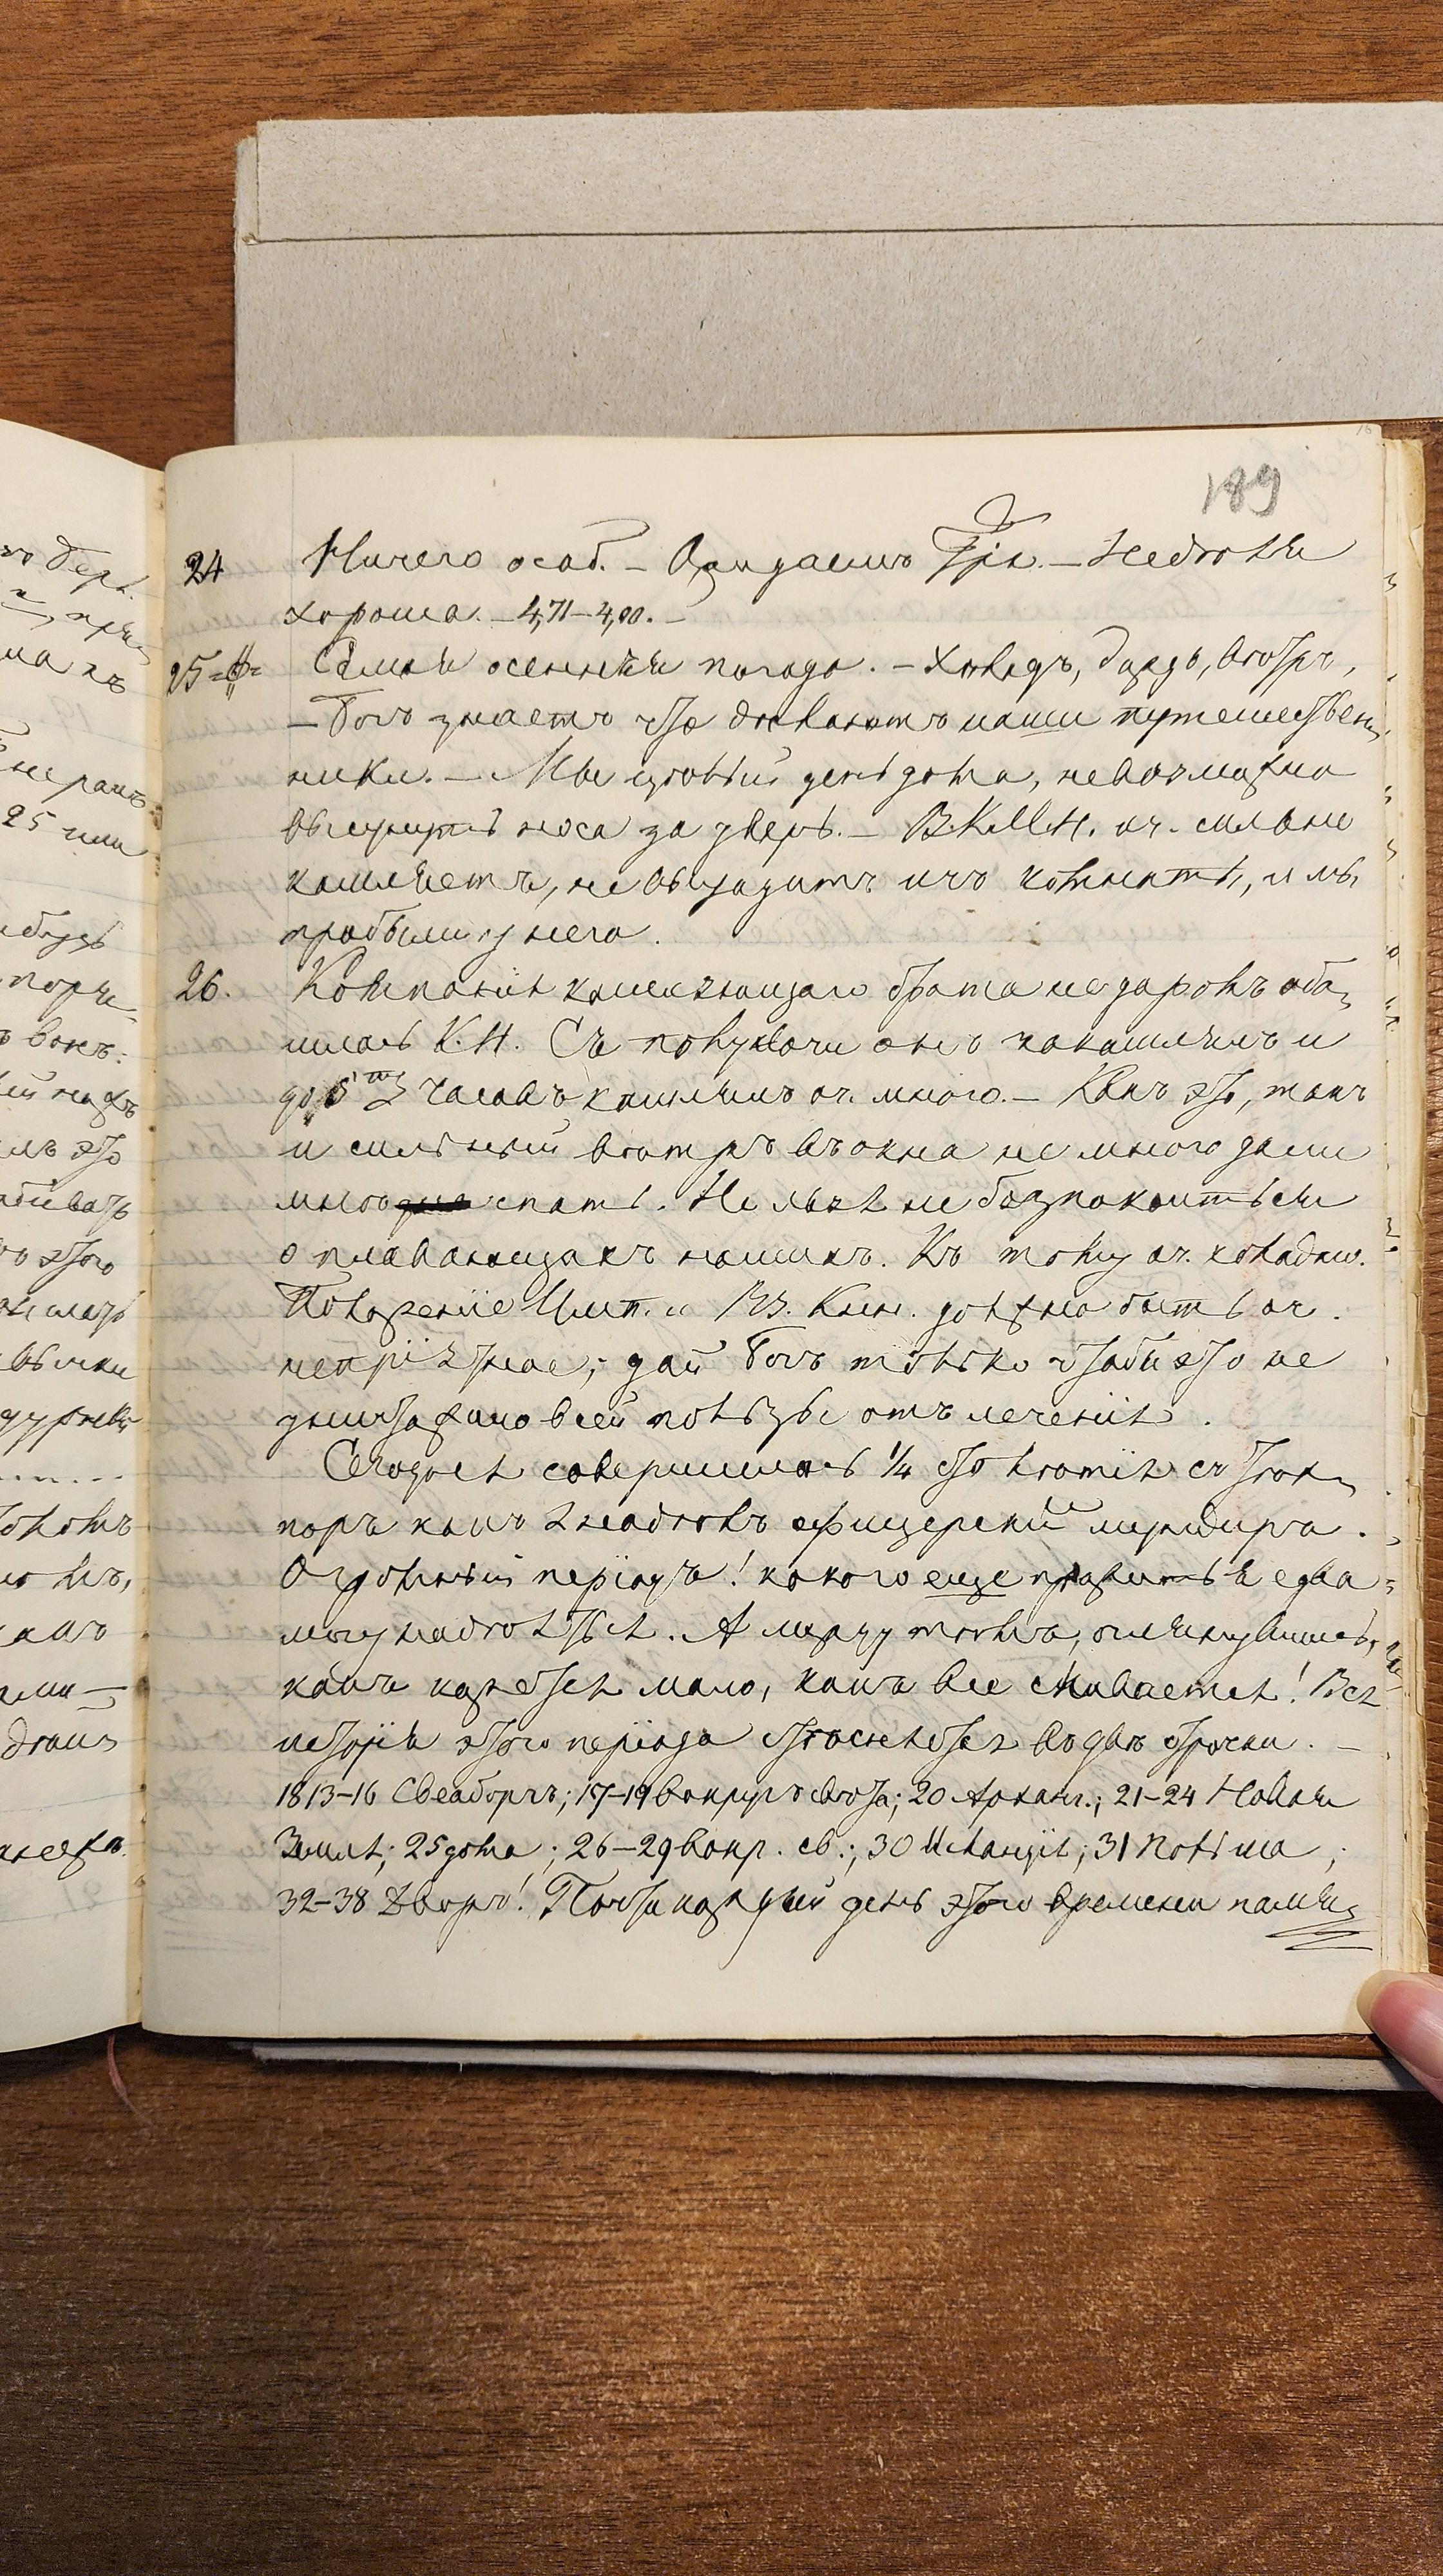 189
24 Ничего особ. – Ожидаемъ – Недѣля
хороша. – 4,71–4,00. –
25 Самая осенняя погода. – Холодъ, дождь, вѣтръ,
– Богъ знаетъ что дѣлаютъ наши путешествен-
ники. – Мы цѣлый день дома, невозможно
высунуть носа за дверь. – В.К.М.Н. оч. сильно
кашляетъ, не выходитъ изъ комнаты, и мы
пробыли у него.
26. Компанія кашляющаго брата не даромъ обо-
шлась К.Н. Съ полуночи онъ закашлялъ и
до 5ти часовъ кашлялъ оч. много. – Какъ это, такъ
и сильный вѣтръ въ окна не много дали
мнѣ спать. Нельзя не безпокоиться
о плавающихъ нашихъ. Къ тому оч. холодно.
Положеніе Имп. и Вз. Княж. должно быть оч.
непріятное; дай Богъ только чтобы это не
уничтожило всей пользы отъ леченія.
Сегодня совершилось ¼ столѣтія съ тѣхъ
поръ какъ я надѣлъ офицерскій мундиръ.
Огромный періодъ! какого еще прожить я едва
могу надѣяться. А между тѣмъ, оглянувшись,
какъ кажется мало, какъ все сливается! Вся
исторія этого періода стѣсняется въ двѣ строчки. –
1813–16 Свеаборгъ; 17–19 вокругъ свѣта; 20 Арханг.; 21–24 Новая
Земля; 25 дома; 26–29 вокр. св.; 30 Исландія; 31 Польша;
32–38 Дворъ! Почти каждый день этого времени памя-